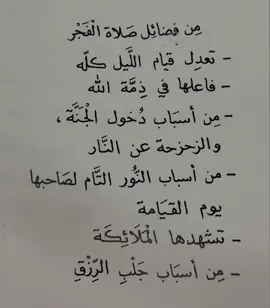 مِن فضَائِل صَلاة الْفَجْر
- تعدِل قيام اللَّيل كلّه
- فاعلها في ذِمَّة الله
- مِن أسبَاب دُخول الْجَنَّة ،
والزحزحة عن النَّار
- من أسباب النُّور التَّام لصَاحبها
يوم القيَامة
- تشهدها الْمَلَائِكَة
- مِن أسبَاب جَلْبِ الرِّزْقِ